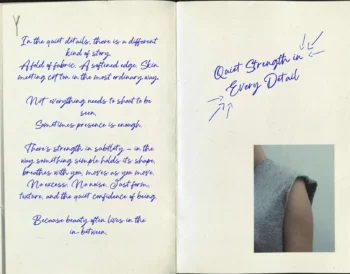 In the quiet details, there is a different
kind of story.
A fold of fabric. A softened edge. Skin
meeting cotton in the most ordinary way.
Not everything needs to shout to be
seen.
Sometimes presence is enough.
There's strength in subtlety – in the
way something simple holds its shape,
breathes with you, moves as you move.
No excess. No noise. Just form,
texture, and the quiet confidence of being.
Because beauty often lives in the
in-between.
Quiet Strength in
Every Detail